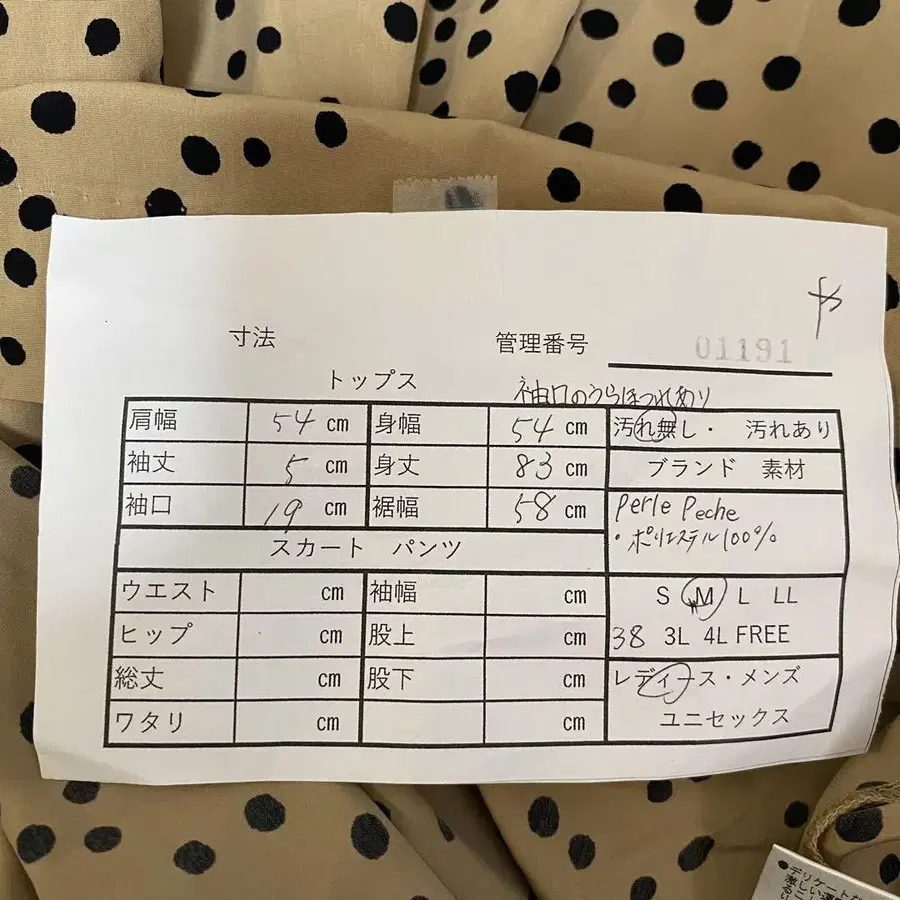 や
寸法 管理番号 01191
トップス 袖口のうらほつれあり
肩幅 54 cm 身幅 54 cm 汚れ無し・ 汚れあり
袖丈 5 cm 身丈 83 cm ブランド 素材
袖口 19 cm 裾幅 58 cm Perle Peche
・ポリエステル100%
スカート パンツ
ウエスト cm 袖幅 cm S M L LL
ヒップ cm 股上 cm 38 3L 4L FREE
総丈 cm 股下 cm レディース・メンズ
ワタリ cm cm ユニセックス
●デリケートな
激しい運